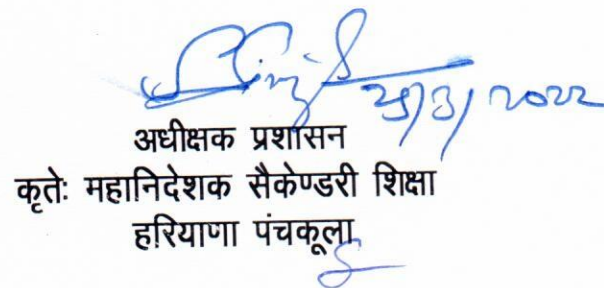 25/3/2022
अधीक्षक प्रशासन
कृतेः महानिदेशक सैकेण्डरी शिक्षा
हरियाणा पंचकूला